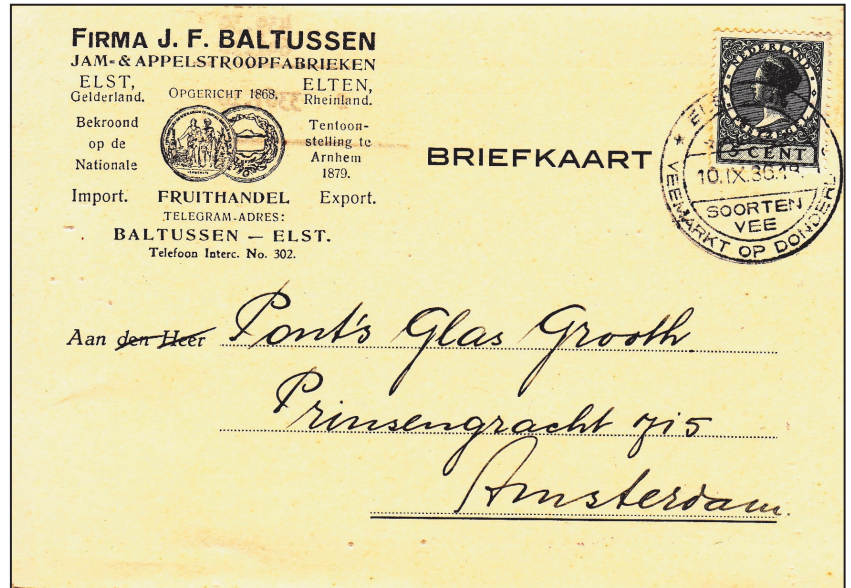 FIRMA J. F. BALTUSSEN
JAM- & APPELSTROOPFABRIEKEN
ELST,
Gelderland.
OPGERICHT 1868.
ELTEN,
Rheinland.
Bekroond
op de
Nationale
Tentoon-
stelling te
Arnhem
1879.
Import. FRUITHANDEL Export.
TELEGRAM-ADRES:
BALTUSSEN — ELST.
Telefoon Interc. No. 302.
BRIEFKAART
NEDERLAND
CENT
10.IX.36.
SOORTEN
VEE
VEEMARKT OP
Aan den Heer Pont's Glas Grooth.
Prinsengracht 715
Amsterdam.